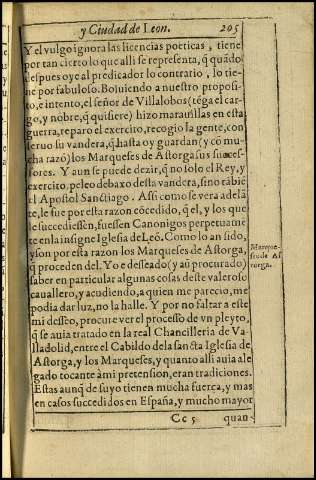 y Ciudad de Leon. 205
Y el vulgo ignora las licencias poeticas, tiene
por tan cierto lo que alli se representa, q̃ quãdo
despues oye al predicador lo contrario, lo tie-
ne por fabuloso. Boluiendo a nuestro proposi-
to, e intento, el señor de Villalobos (tẽga el car-
go, y nõbre, q̃ quisiere) hizo marauillas en esta
guerra, reparo el exercito, recogio la gente, con
seruo su vandera, q̃ hasta oy guardan (y cõ mu-
cha razõ) los Marqueses de Astorga sus succes-
sores. Y aun se puede dezir, q̃ no solo el Rey, y
exercito, peleo debaxo desta vandera, sino tãbiẽ
el Apostol Sanctiago. Assi como se vera adelã
te, le fue por esta razon cõcedido, q̃ el, y los que
le succediessẽn, fuessen Canonigos perpetuamẽ
te en la insigne Iglesia de Leõ. Como lo an sido,
y son por esta razon los Marqueses de Astorga,
q̃ proceden del. Yo e deseado (y aũ procurado)
saber en particular algunas cosas deste valeroso
cauallero, y acudiendo, a quien me parecio, me
podia dar luz, no la halle. Y por no faltar a este
mi dessẽo, procure ver el processo de vn pleyto,
q̃ se auia tratado en la real Chancilleria de Va-
lladolid, entre el Cabildo de la sancta Iglesia de
Astorga, y los Marqueses, y quanto alli auia ale
gado tocante à mi pretension, eran tradiciones.
Estas aunq̃ de suyo tienen mucha fuerça, y mas
en casos succedidos en España, y mucho mayor
Cc 5 quan-
Marque-
ses de As
torga.